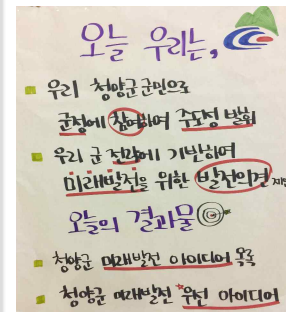 오늘 우리는,
우리 청양군 군민으로
군정에 참여하여 주도성 발휘
우리 군 전략에 기반하여
미래발전을 위한 발전의견
오늘의 결과물
청양군 미래발전 아이디어 목록
청양군 미래발전 우선 아이디어